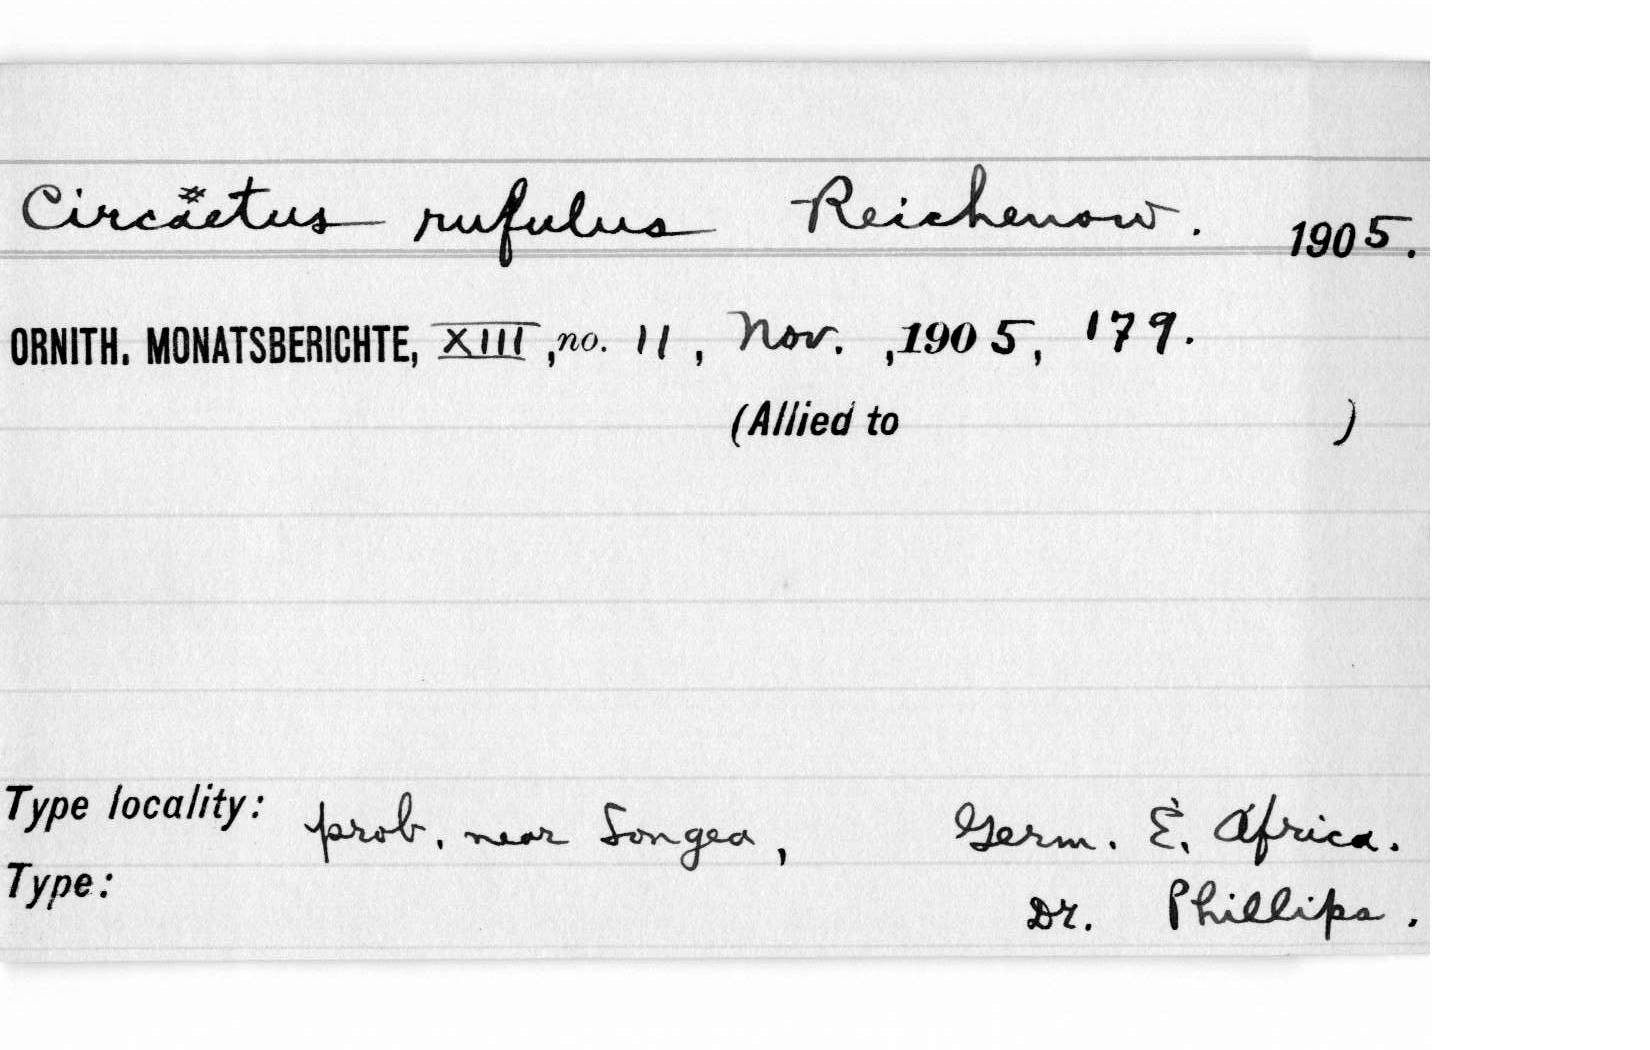 Circäetus rufulus Reichenow. 1905.
ORNITH. MONATSBERICHTE, XIII, no. 11, Nov., 1905, 179.
(Allied to )
Type locality: prob. near Songea, Germ. E. Africa.
Type: Dr. Phillips.